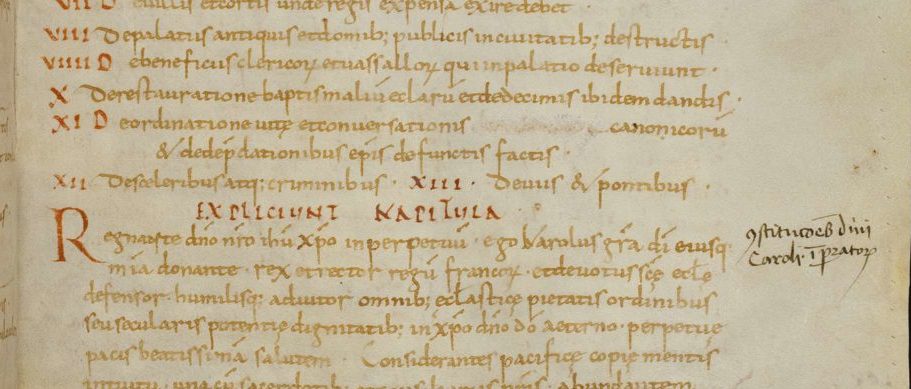 VII De cultis et cortis unde regis expensa exire debet ·
VIII De palatiis antiquis et domib; publicis in civitatib; destructis ·
VIIII De beneficiis clericoꝝ et vassalloꝝ qui in palatio deserviunt ·
X De restauratione baptismaliū ecl̄arū et de decimis ibidem dandis ·
XI De ordinatione vitę et conversationis canonicorū
& de dep̄dationibus ep̄is defunctis factis ·
XII De sceleribus atq; criminibus · XIII · De viis & pontibus ·
EXPLICIUNT KAPITULA
Regnante dn̄o nr̄o ih̄u xp̄o in perpetuū · ego karolus gr̄a dī eiusq·
mīa donante · rex et rector regnū francoꝝ · et devotus sc̄ę ecl̄ę
defensor · humilisq; adiutor omnib; ecl̄asticę pietatis ordinibus
seu secularis potentię dignitatib; in xp̄o dn̄o dō aeterno · perpetuę
pacis beatissimā salutem · Considerantes pacificę copię mentis
intuitu · una cū sacerdotib; nr̄is · abundantem
ꝯstitutões d'nī
Caroli Īp̄ratoꝝ